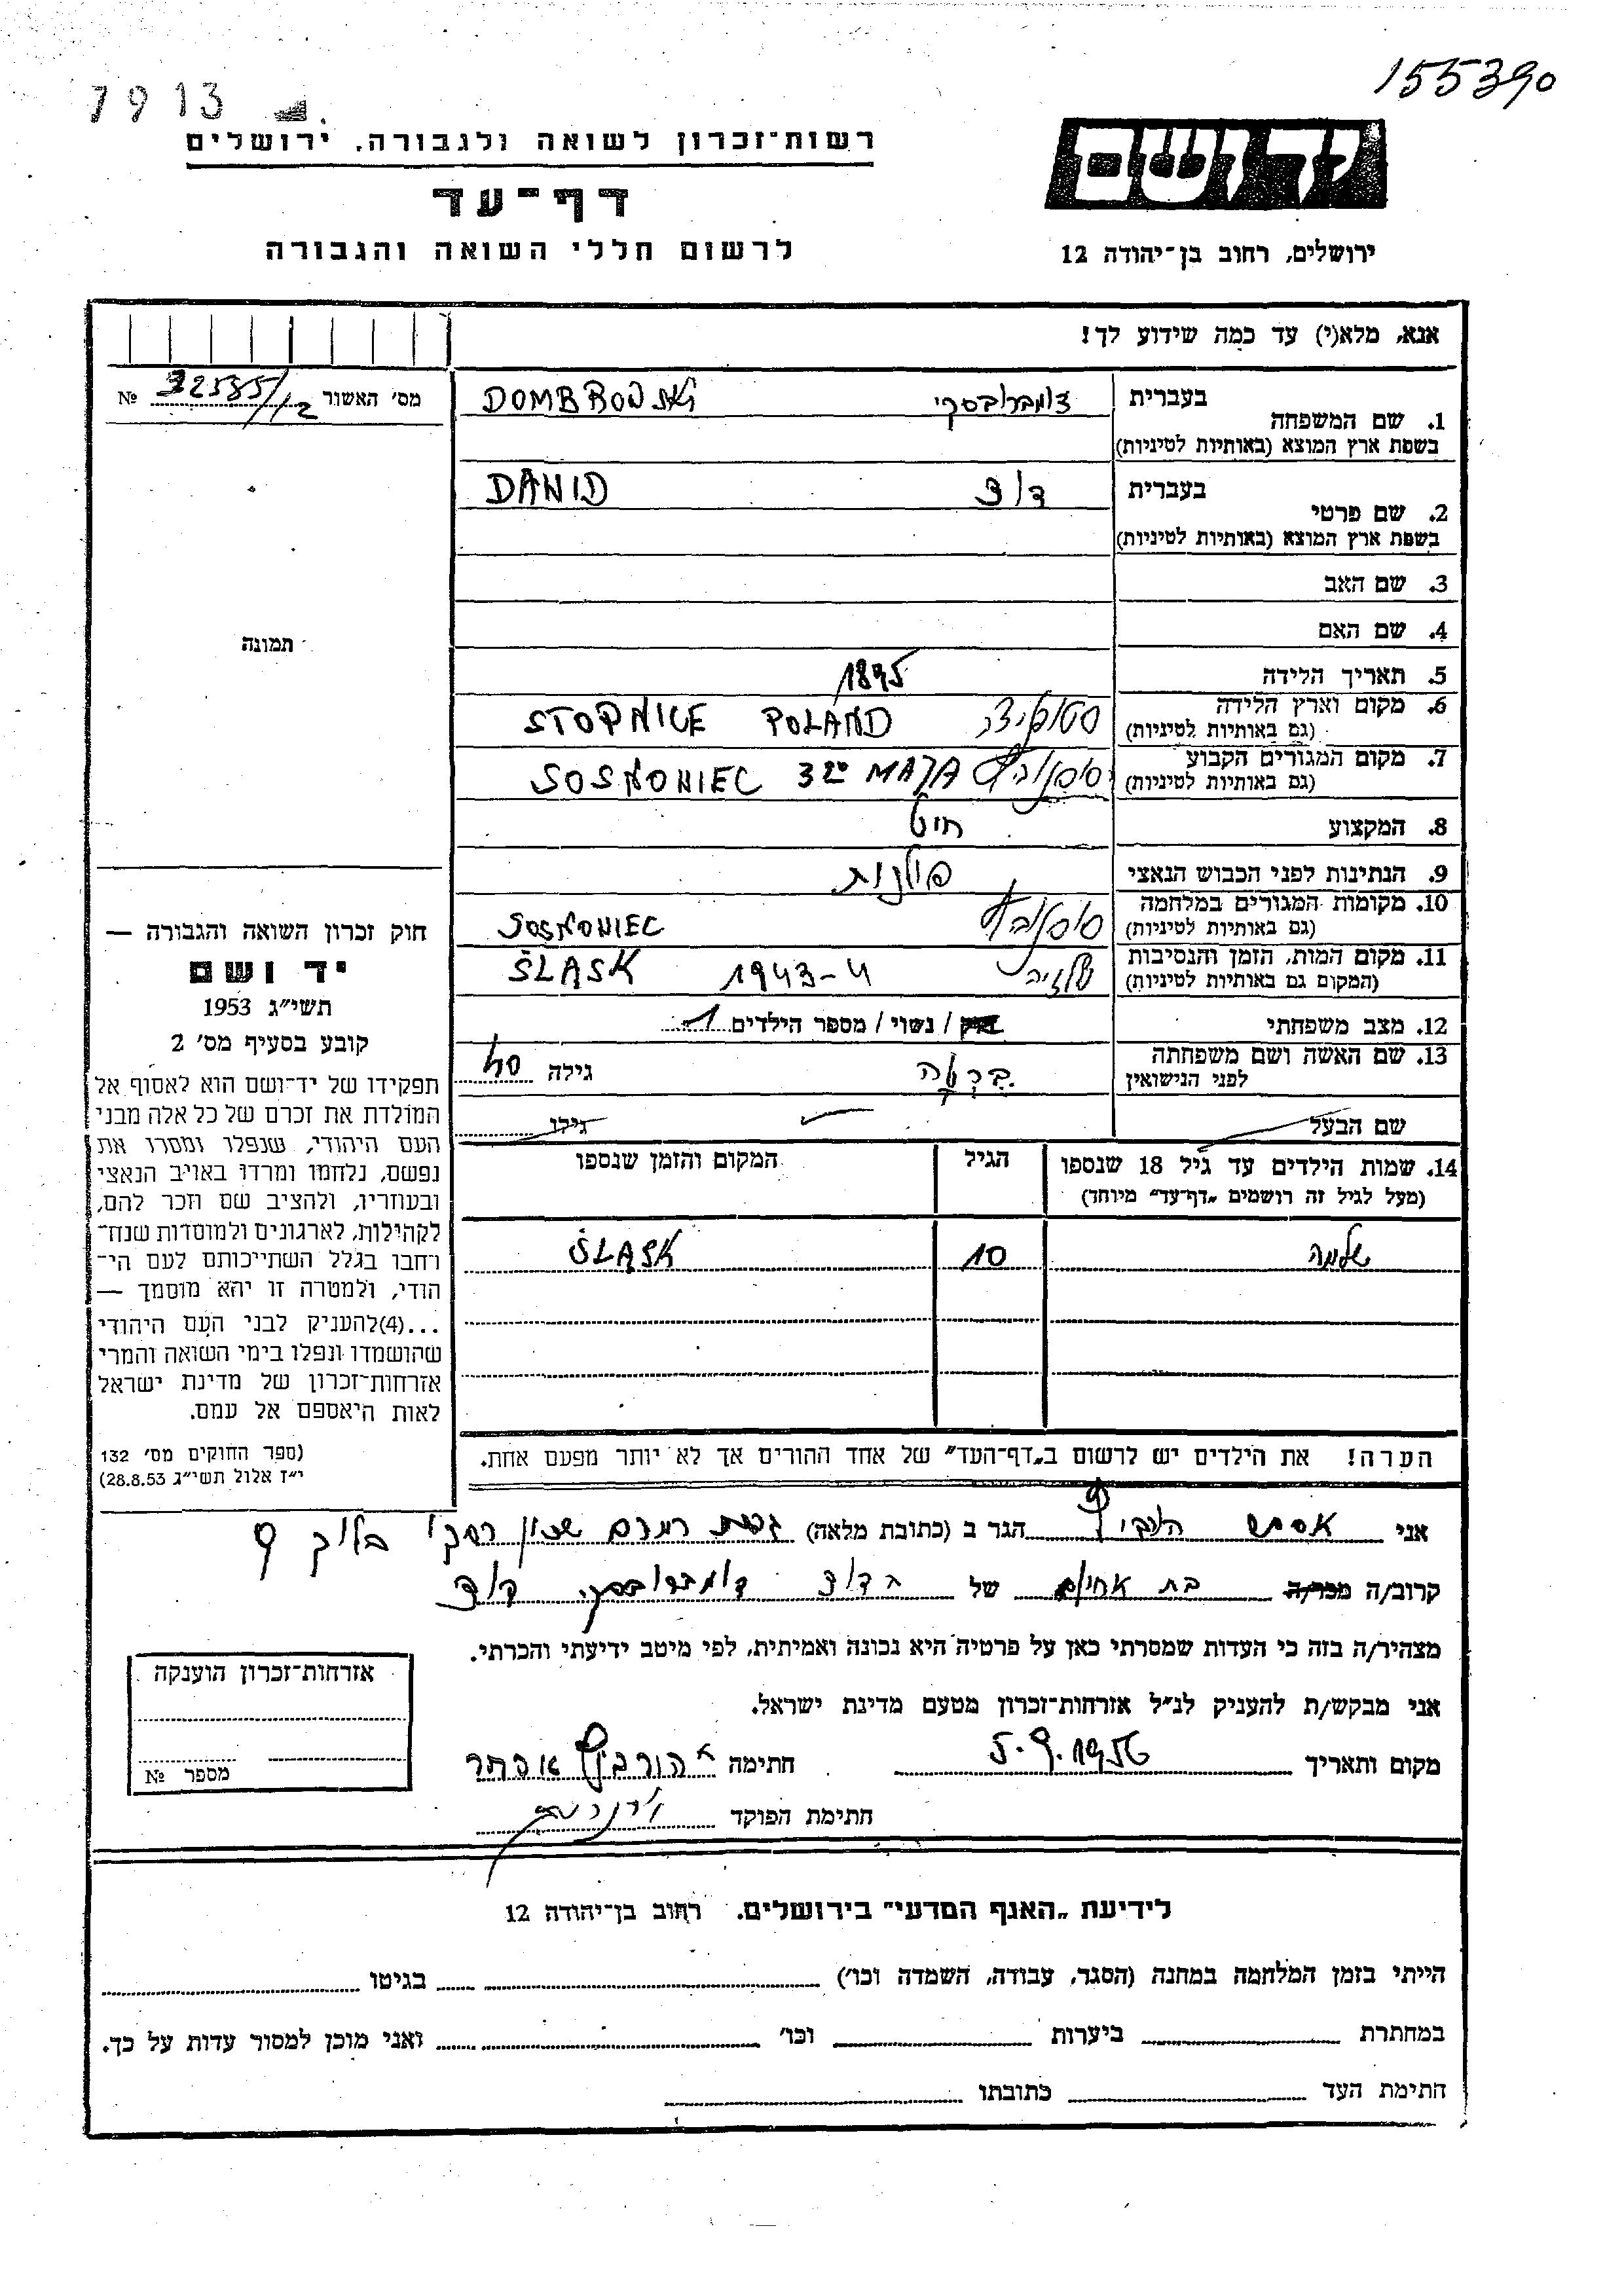 155390
7913
יד ושם
רשות־זכרון לשואה ולגבורה, ירושלים
דף־עד
לרשום חללי השואה והגבורה
ירושלים, רחוב בן־יהודה 12
אנא, מלא(י) עד כמה שידוע לך!
מס׳ האשור 32585/12 №
1. שם המשפחה
בעברית דומברובסקי DOMBROWSKI
בשפת ארץ המוצא (באותיות לטיניות)
2. שם פרטי
בעברית דוד DAWID
בשפת ארץ המוצא (באותיות לטיניות)
3. שם האב
4. שם האם
5. תאריך הלידה 1895
6. מקום וארץ הלידה
(גם באותיות לטיניות) STOPNICE POLAND
7. מקום המגורים הקבוע
(גם באותיות לטיניות) SOSNOWIEC 3go MAJA
8. המקצוע חיט
9. הנתינות לפני הכבוש הנאצי פולנית
10. מקומות המגורים במלחמה
(גם באותיות לטיניות) סוסנוביץ SOSNOWIEC
11. מקום המות, הזמן והנסיבות
(המקום גם באותיות לטיניות) שלזיה 1943-4 ŚLĄSK
12. מצב משפחתי רוק / נשוי / מספר הילדים 1
13. שם האשה ושם משפחתה
לפני הנישואין ברטה גילה 40
שם הבעל גילו
14. שמות הילדים עד גיל 18 שנספו הגיל המקום והזמן שנספו
(מעל לגיל זה רושמים „דף־עד״ מיוחד)
שלמה 10 ŚLĄSK
הערה! את הילדים יש לרשום ב„דף־העד״ של אחד ההורים אך לא יותר מפעם אחת.
תמונה
חוק זכרון השואה והגבורה —
יד ושם
תשי״ג 1953
קובע בסעיף מס׳ 2
תפקידו של יד־ושם הוא לאסוף אל
המולדת את זכרם של כל אלה מבני
העם היהודי, שנפלו ומסרו את
נפשם, נלחמו ומרדו באויב הנאצי
ובעוזריו, ולהציב שם וזכר להם,
לקהילות, לארגונים ולמוסדות שנח־
רחבו בגלל השתייכותם לעם הי־
הודי, ולמטרה זו יהא מוסמך —
...(4)להעניק לבני העם היהודי
שהושמדו ונפלו בימי השואה והמרי
אזרחות־זכרון של מדינת ישראל
לאות היאספם אל עמם.
(ספר החוקים מס׳ 132
י״ז אלול תשי״ג 28.8.53)
אני אסתר הורביץ הגר ב (כתובת מלאה) גבעת רמבם שכון רסקו בלוק 9
קרוב/ה מכר/ה בת אחים של הדוד דומברובסקי דוד
מצהיר/ה בזה כי העדות שמסרתי כאן על פרטיה היא נכונה ואמיתית, לפי מיטב ידיעתי והכרתי.
אני מבקש/ת להעניק לנ״ל אזרחות־זכרון מטעם מדינת ישראל.
מקום ותאריך 5.9.1956 חתימה הורביץ אסתר
חתימת הפוקד
אזרחות־זכרון הוענקה
מספר №
לידיעת „האגף המדעי״ בירושלים. רחוב בן־יהודה 12
הייתי בזמן המלחמה במחנה (הסגר, עבודה, השמדה וכו׳) בגיטו
במחתרת ביערות וכו׳ ואני מוכן למסור עדות על כך.
חתימת העד כתובתו